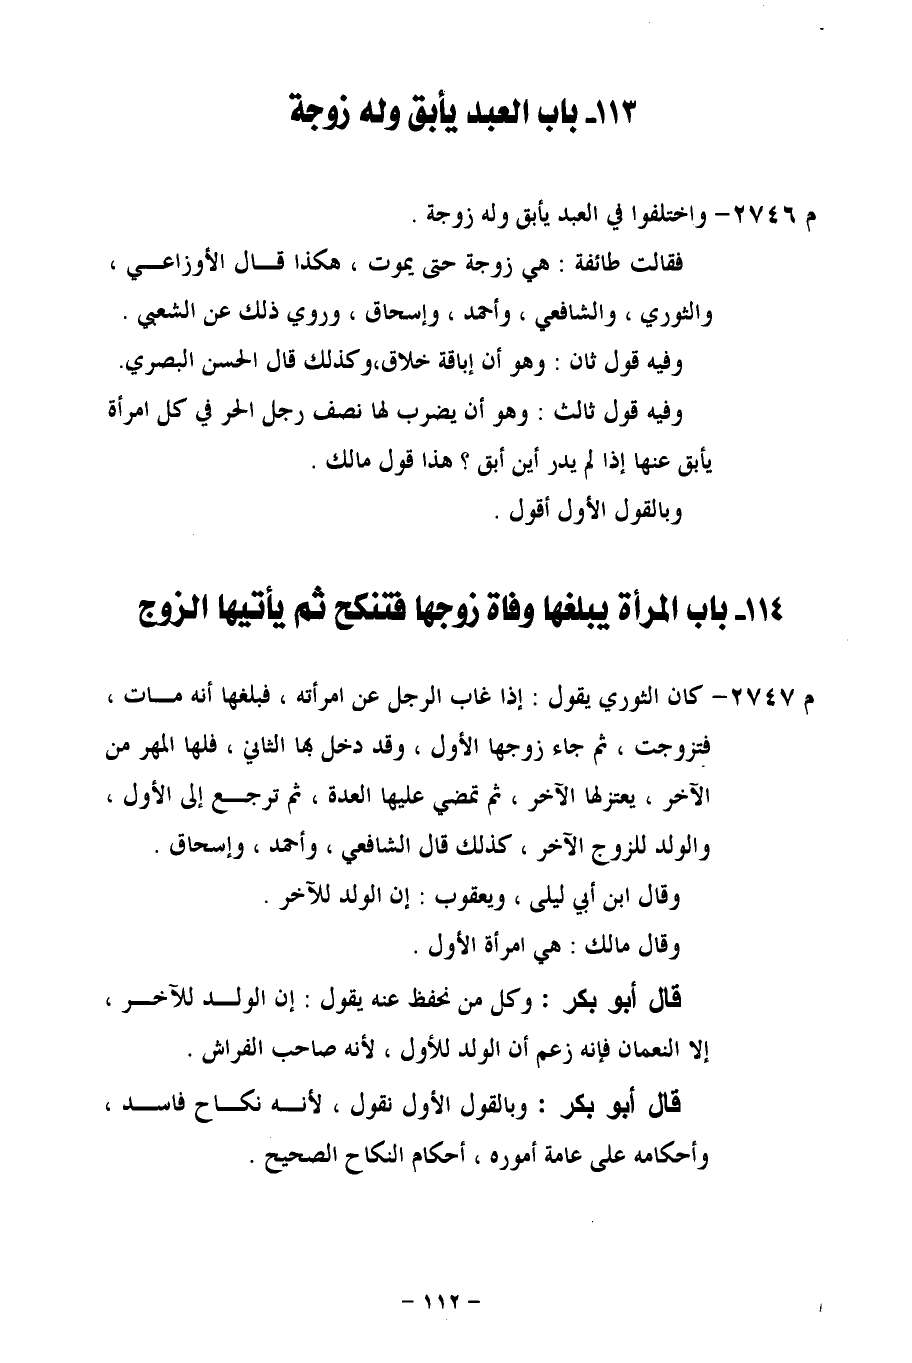 ١١٣ـ باب العبد يأبق وله زوجة
م ٢٧٤٦ – واختلفوا في العبد يأبق وله زوجة .
فقالت طائفة : هي زوجة حتى يموت ، هكذا قـــال الأوزاعـــي ،
والثوري ، والشافعي ، وأحمد ، وإسحاق ، وروي ذلك عن الشعبي .
وفيه قول ثان : وهو أن إباقة خلاق،وكذلك قال الحسن البصري.
وفيه قول ثالث : وهو أن يضرب لها نصف رجل الحر في كل امرأة
يأبق عنها إذا لم يدر أين أبق ؟ هذا قول مالك .
وبالقول الأول أقول .
١١٤ـ باب المرأة يبلغها وفاة زوجها فتنكح ثم يأتيها الزوج
م ٢٧٤٧ – كان الثوري يقول : إذا غاب الرجل عن امرأته ، فبلغها أنه مـــات ،
فتزوجت ، ثم جاء زوجها الأول ، وقد دخل بها الثاني ، فلها المهر من
الآخر ، يعتزلها الآخر ، ثم تمضي عليها العدة ، ثم ترجـــع إلى الأول ،
والولد للزوج الآخر ، كذلك قال الشافعي ، وأحمد ، وإسحاق .
وقال ابن أبي ليلى ، ويعقوب : إن الولد للآخر .
وقال مالك : هي امرأة الأول .
قال أبو بكر : وكل من نحفظ عنه يقول : إن الولـــد للآخـــر ،
إلا النعمان فإنه زعم أن الولد للأول ، لأنه صاحب الفراش .
قال أبو بكر : وبالقول الأول نقول ، لأنـــه نكـــاح فاســـد ،
وأحكامه على عامة أموره ، أحكام النكاح الصحيح .
– ١١٢ –